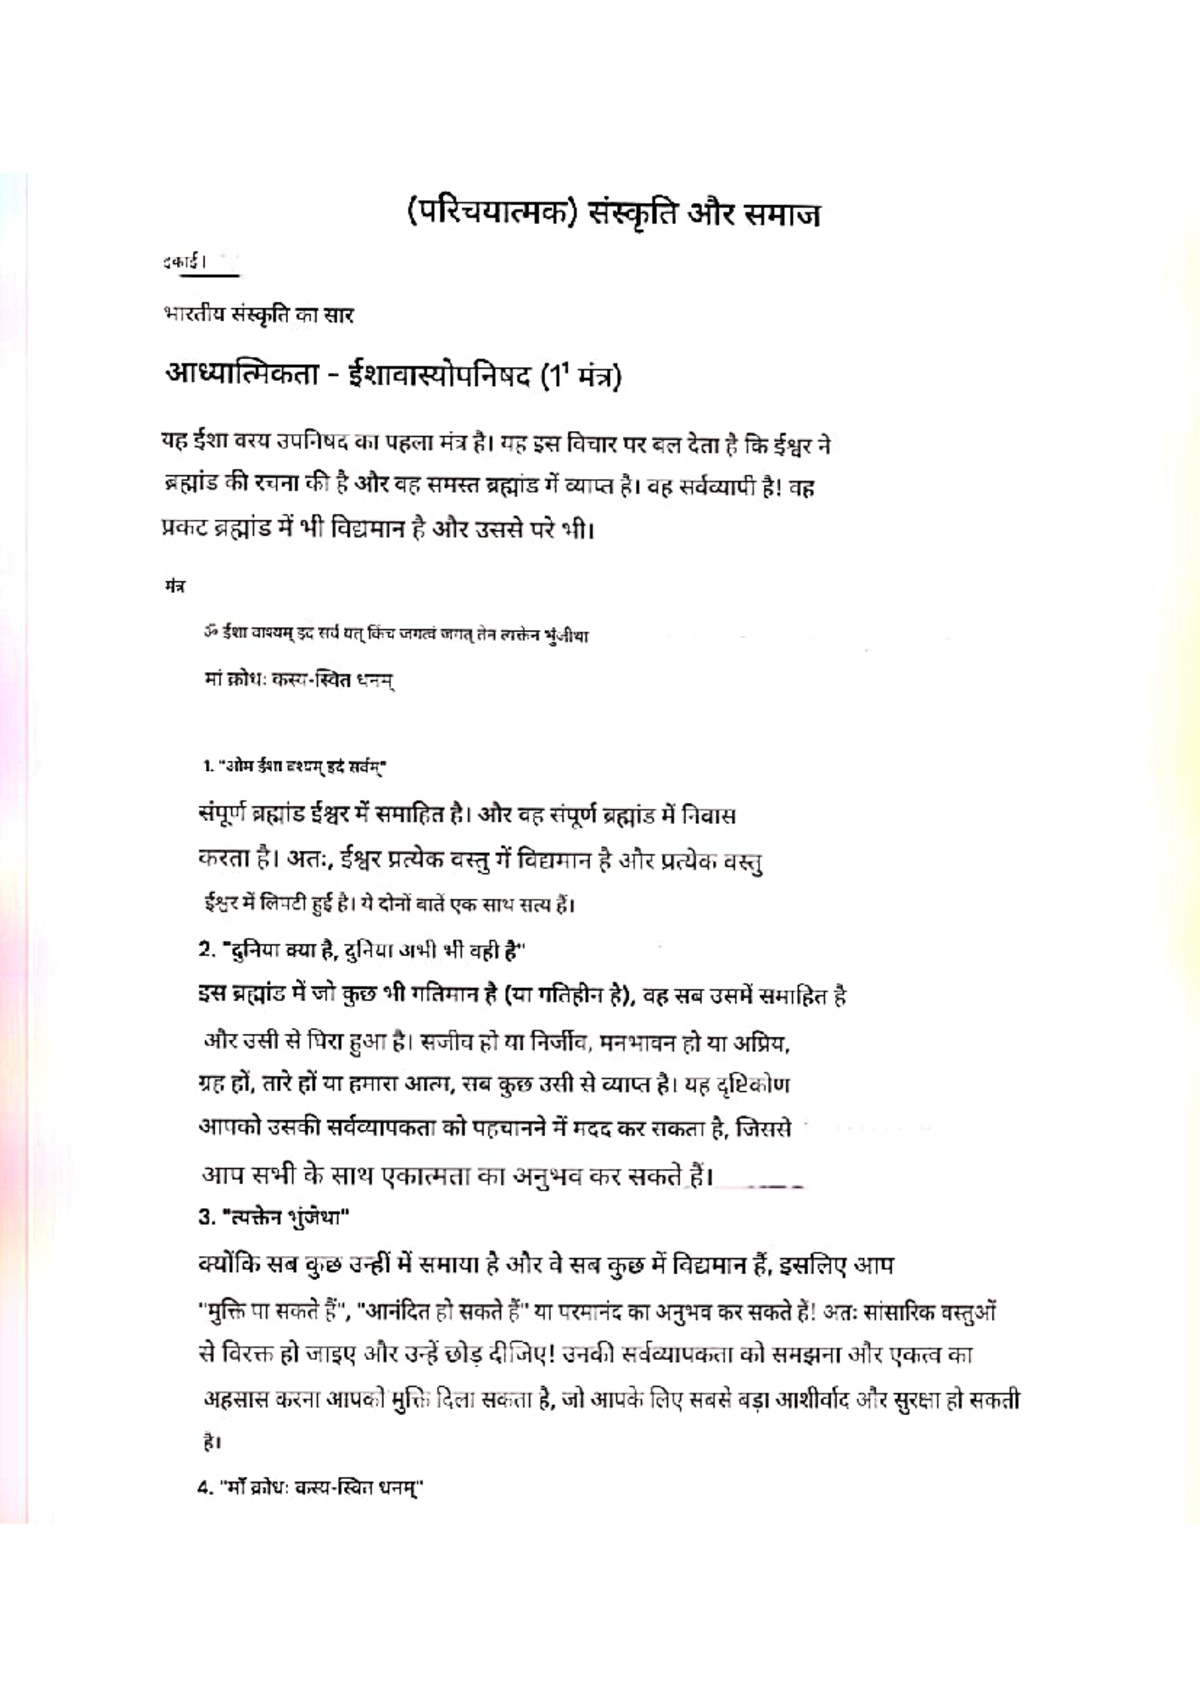 (परिचयात्मक) संस्कृति और समाज
इकाई।
भारतीय संस्कृति का सार
आध्यात्मिकता - ईशावास्योपनिषद (1¹ मंत्र)
यह ईशा वस्य उपनिषद का पहला मंत्र है। यह इस विचार पर बल देता है कि ईश्वर ने
ब्रह्मांड की रचना की है और वह समस्त ब्रह्मांड में व्याप्त है। वह सर्वव्यापी है! वह
प्रकट ब्रह्मांड में भी विद्यमान है और उससे परे भी।
मंत्र
ॐ ईशा वाश्यम् इदं सर्व यत् किंच जगत्वं जगत् तेन त्यक्तेन भुंजीथा
मां क्रोधः कस्य-स्वित धनम्
1. "ओम ईशा वश्यम् इदं सर्वम्"
संपूर्ण ब्रह्मांड ईश्वर में समाहित है। और वह संपूर्ण ब्रह्मांड में निवास
करता है। अतः, ईश्वर प्रत्येक वस्तु में विद्यमान है और प्रत्येक वस्तु
ईश्वर में लिपटी हुई है। ये दोनों बातें एक साथ सत्य हैं।
2. "दुनिया क्या है, दुनिया अभी भी वही है"
इस ब्रह्मांड में जो कुछ भी गतिमान है (या गतिहीन है), वह सब उसमें समाहित है
और उसी से घिरा हुआ है। सजीव हो या निर्जीव, मनभावन हो या अप्रिय,
ग्रह हों, तारे हों या हमारा आत्म, सब कुछ उसी से व्याप्त है। यह दृष्टिकोण
आपको उसकी सर्वव्यापकता को पहचानने में मदद कर सकता है, जिससे
आप सभी के साथ एकात्मता का अनुभव कर सकते हैं।
3. "त्यक्तेन भुंजेथा"
क्योंकि सब कुछ उन्हीं में समाया है और वे सब कुछ में विद्यमान हैं, इसलिए आप
"मुक्ति पा सकते हैं", "आनंदित हो सकते हैं" या परमानंद का अनुभव कर सकते हैं! अतः सांसारिक वस्तुओं
से विरक्त हो जाइए और उन्हें छोड़ दीजिए! उनकी सर्वव्यापकता को समझना और एकत्व का
अहसास करना आपको मुक्ति दिला सकता है, जो आपके लिए सबसे बड़ा आशीर्वाद और सुरक्षा हो सकती
है।
4. "माँ क्रोधः कस्य-स्वित धनम्"